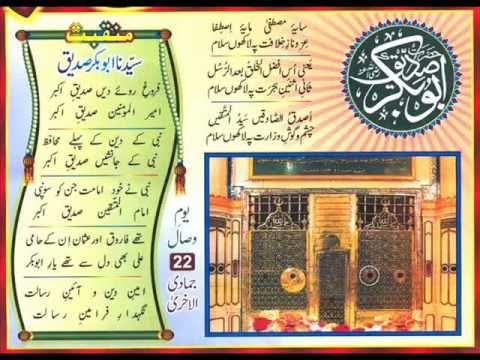 منقبت
سیّدنا ابوبکر صدیق
فروغ روئے دیں صدیقِ اکبر
امیر المومنین صدیقِ اکبر
نبی کے دین کے پہلے محافظ
نبی کے جانشیں صدیقِ اکبر
نبی نے خود امامت جن کو سونپی
امام المتقین صدیقِ اکبر
تھے فاروق اور عثمان ان کے حامی
علی بھی دل سے تھے یارِ ابوبکر
امینِ دین و آئینِ رسالت
نگہدارِ فرامینِ رسالت
سایۂ مصطفٰی مایۂ اِصطِفا
عِزّ و نازِ خلافت پہ لاکھوں سلام
یعنی اُس افضل الخلق بعد الرُسل
ثانی اثنین ہجرت پہ لاکھوں سلام
اَصدق الصّادقیں سیّد المتّقیں
چشم و گوشِ وزارت پہ لاکھوں سلام
حضرت
ابوبکر صدیق
یوم
وصال
22
جمادی
الاخریٰ